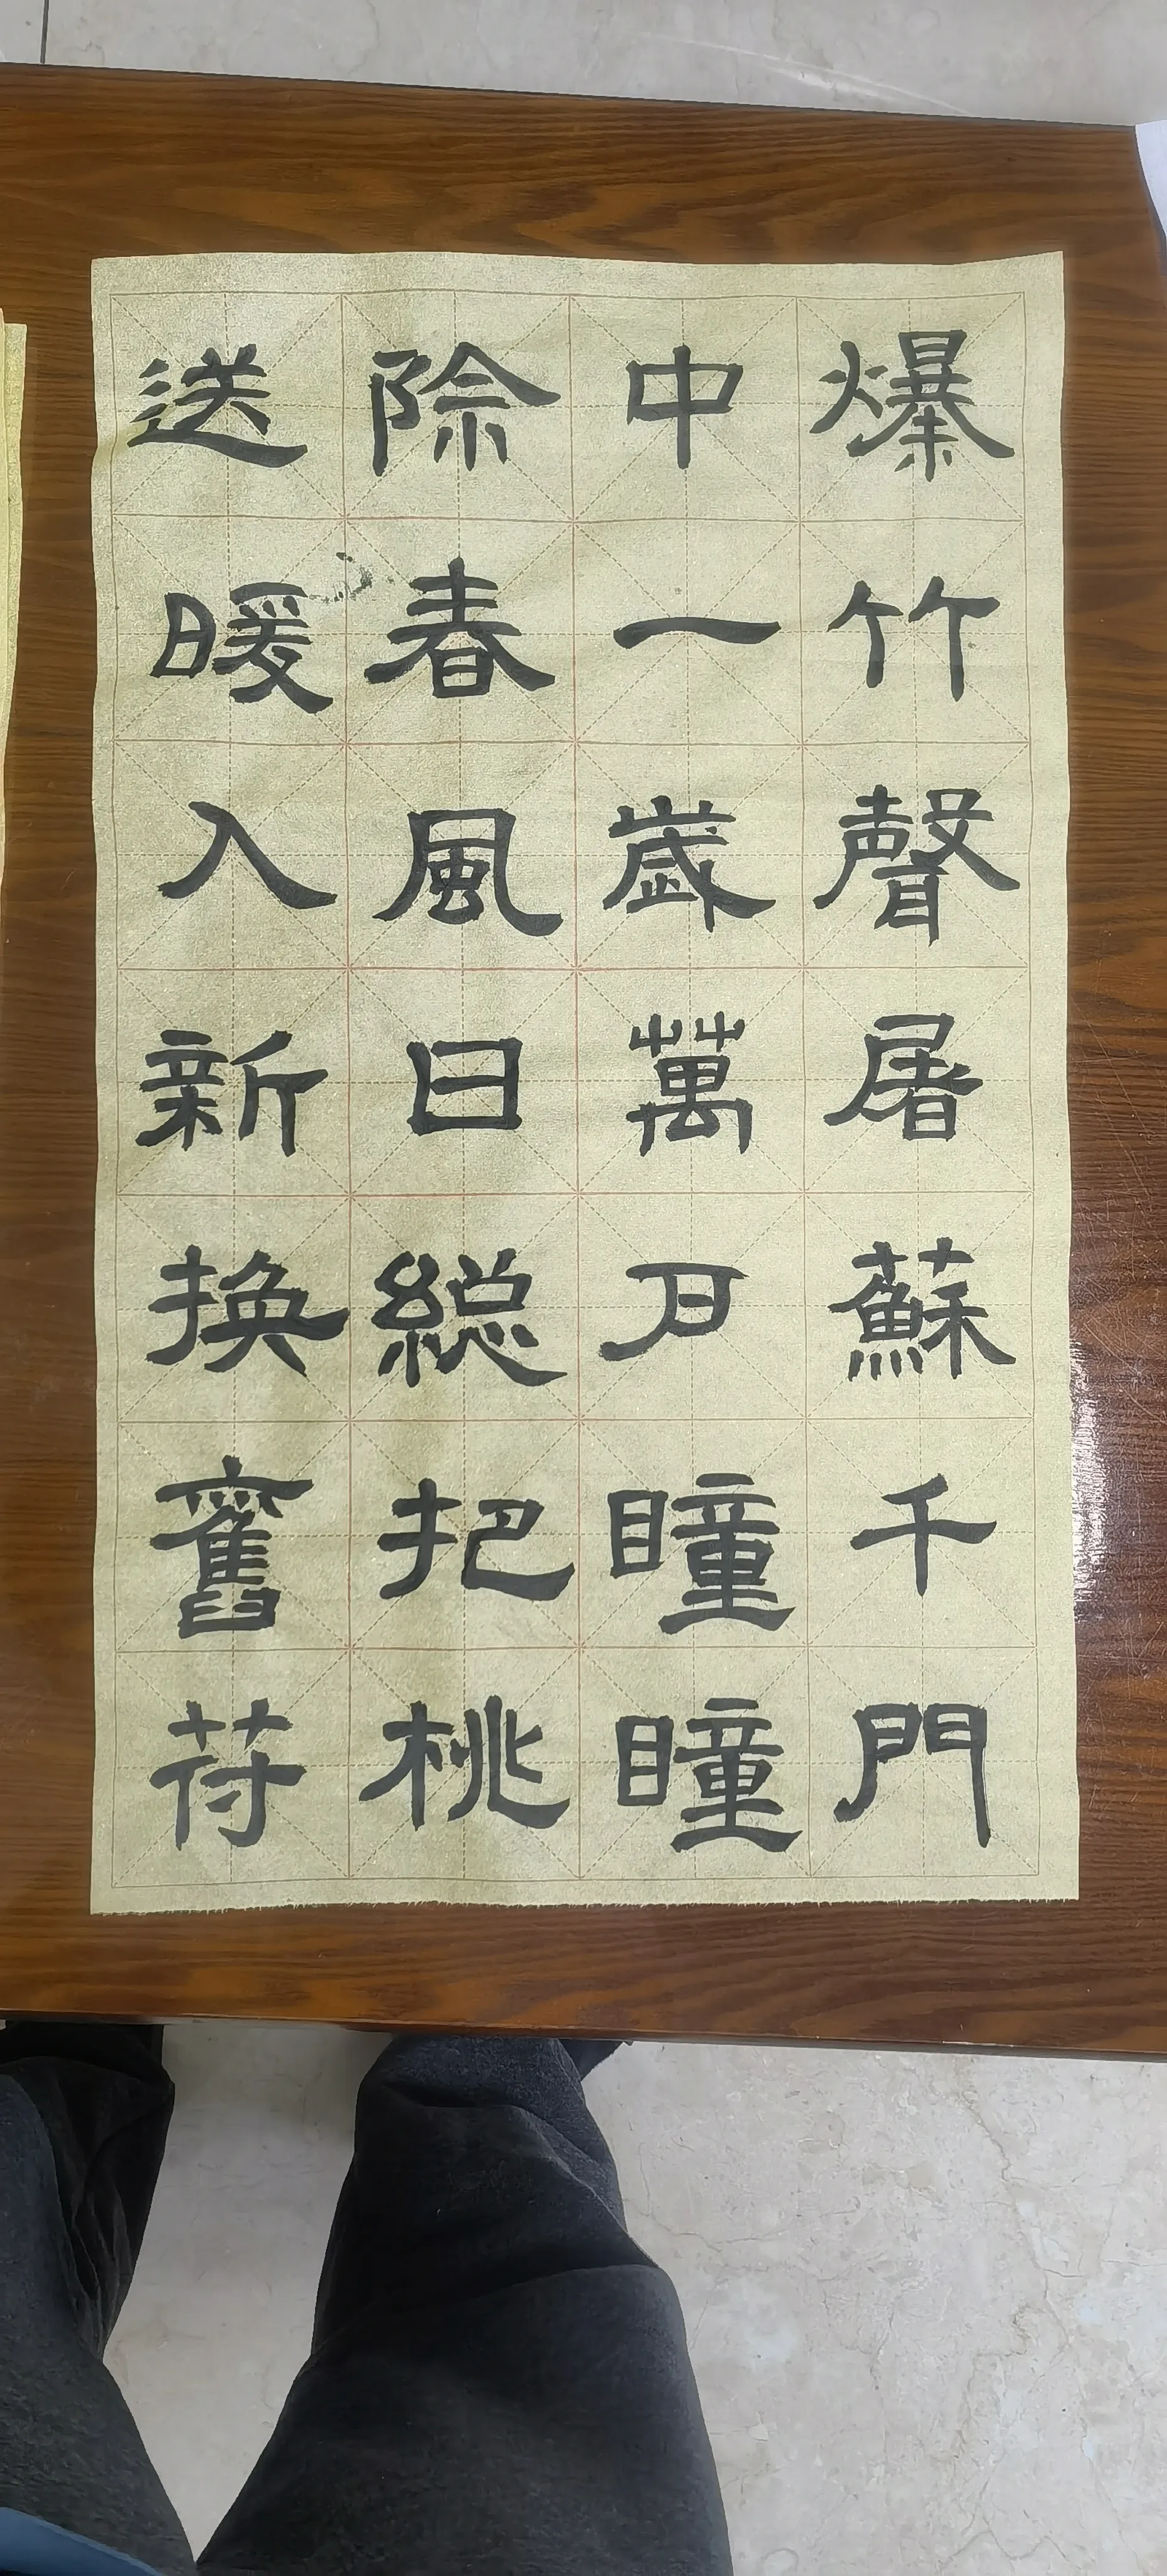 爆竹聲屠蘇千門
中一歲萬戶瞳瞳
除春風日総把桃
送暖入新換舊苻